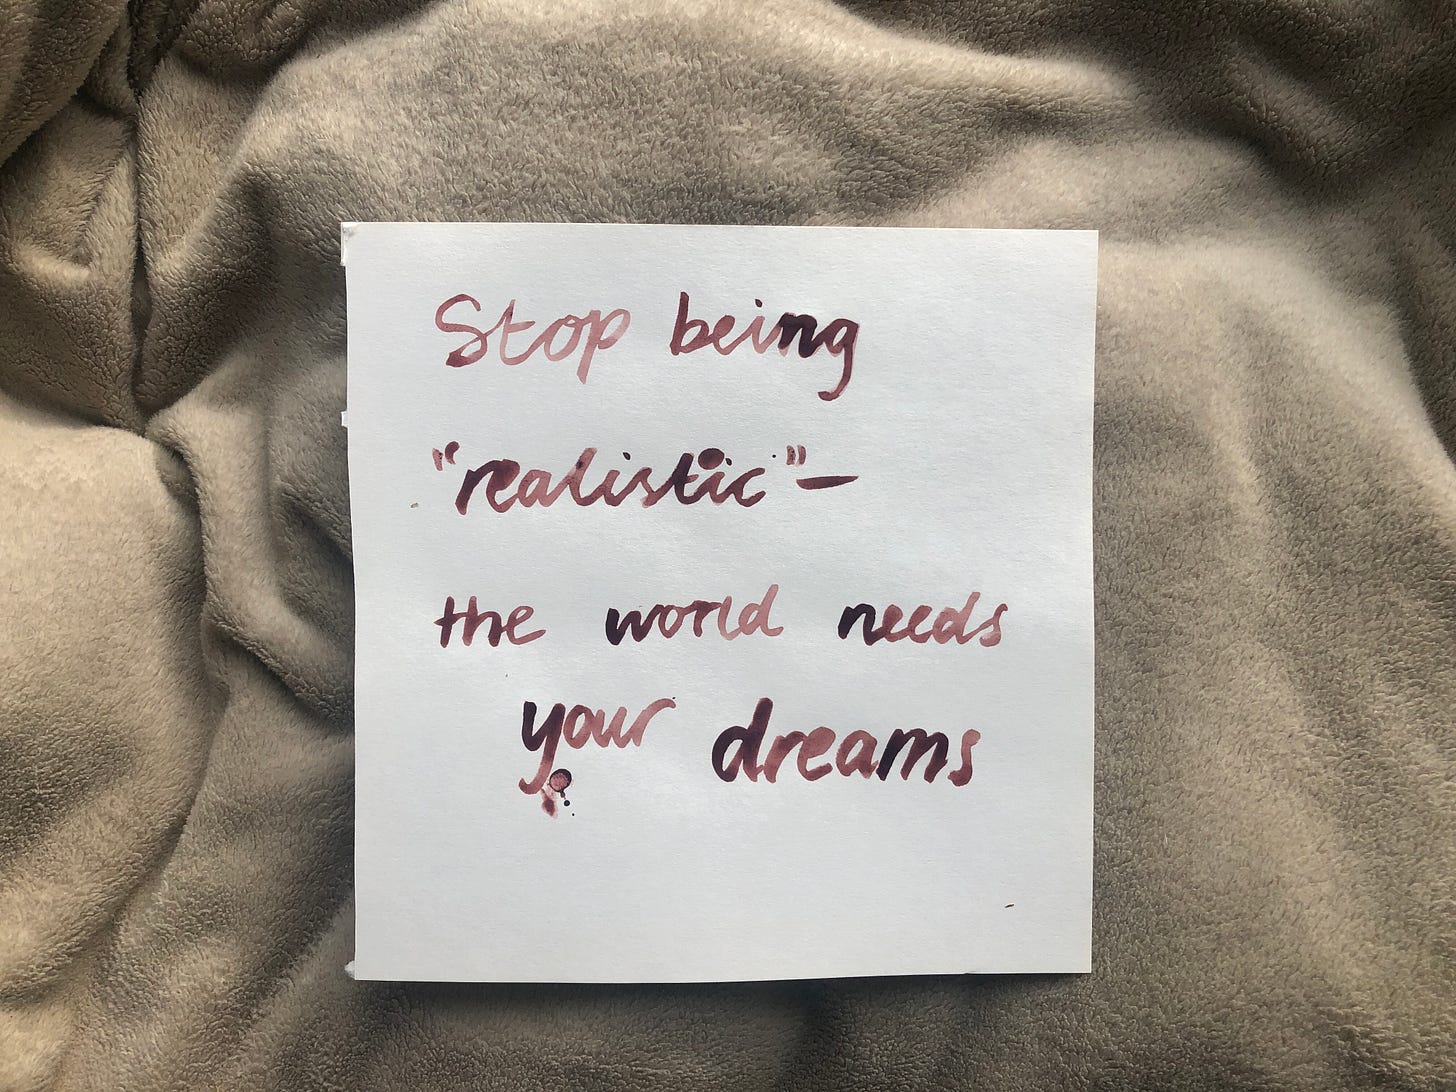 Stop being
"realistic"—
the world needs
your dreams